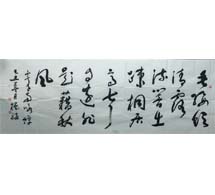 垂緌飲
清露
流響出
疎桐居
高聲
自遠非
是藉秋
風